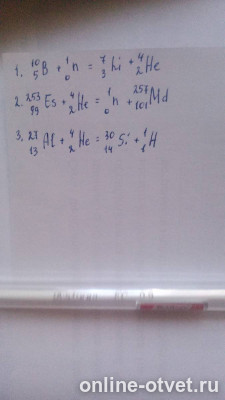 1. ¹⁰₅B + ¹₀n = ⁷₃Li + ⁴₂He
2. ²⁵³₉₉Es + ⁴₂He = ¹₀n + ²⁵⁷₁₀₁Md
3. ²⁷₁₃Al + ⁴₂He = ³⁰₁₄Si + ¹₁H
online-otvet.ru